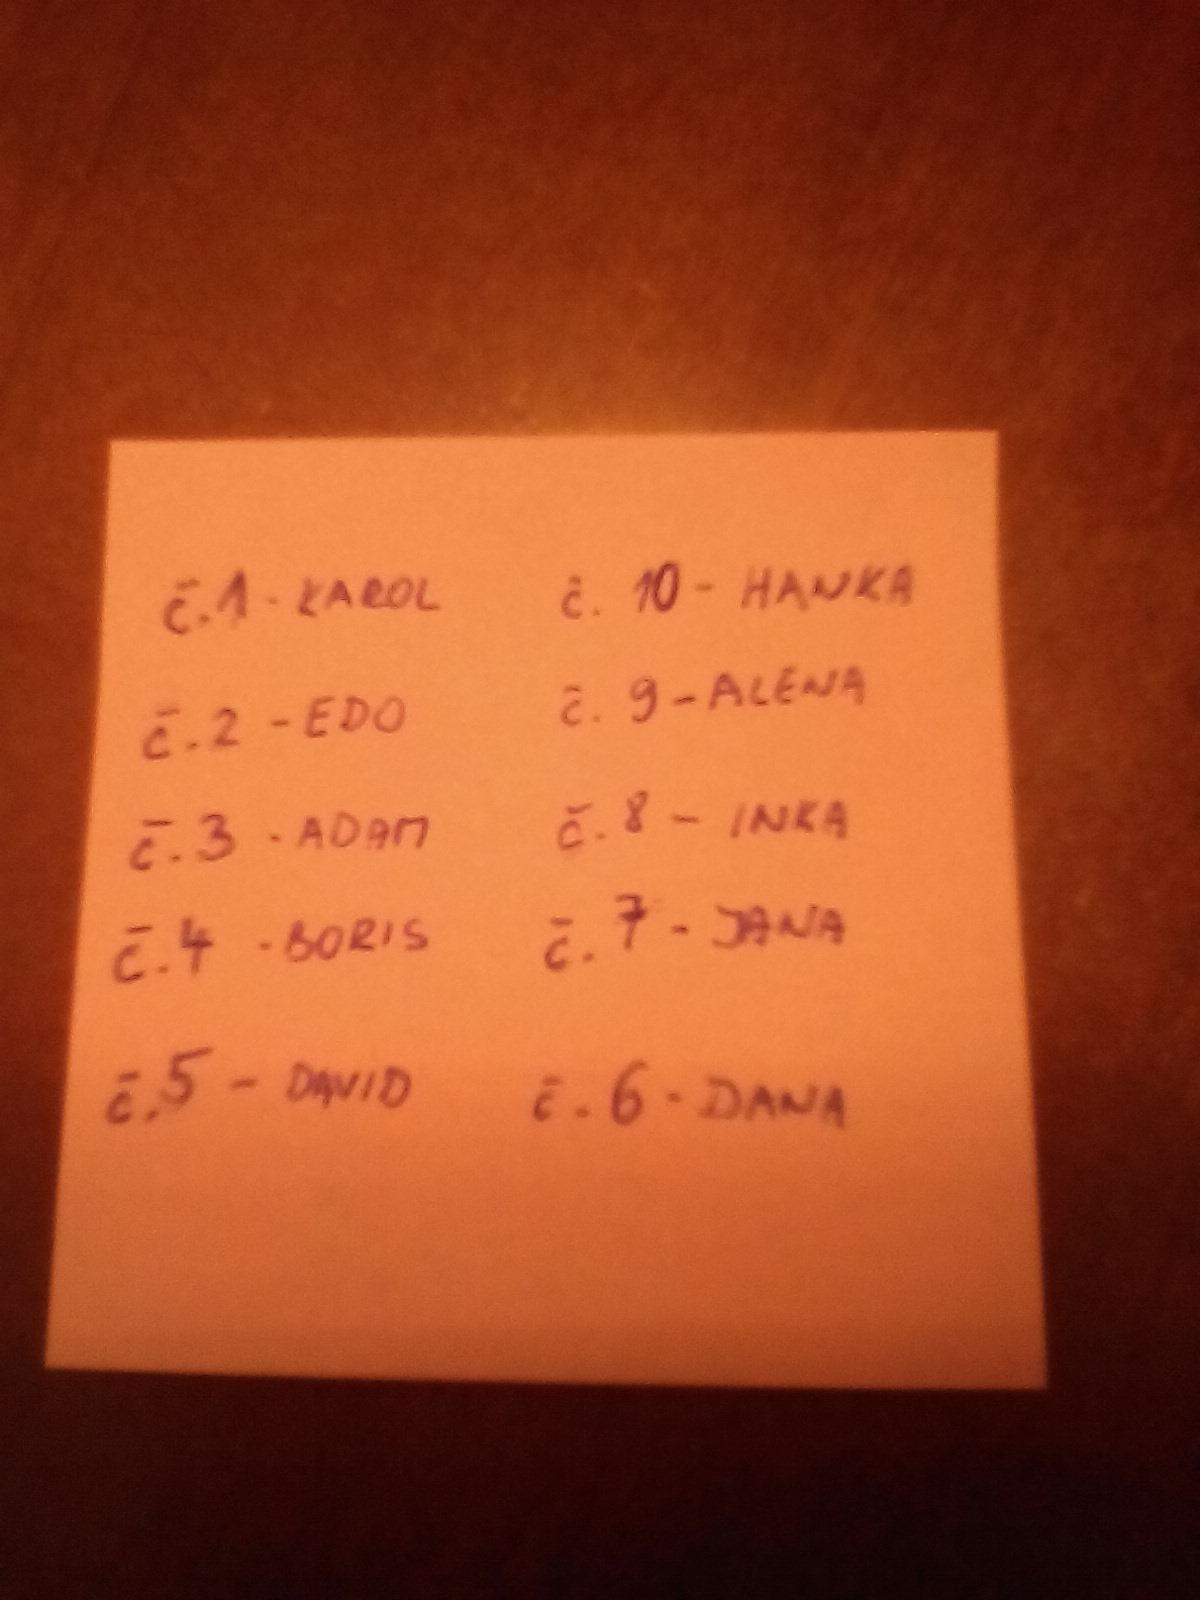 č.1 - KAROL
č.2 - EDO
č.3 - ADAM
č.4 - BORIS
č.5 - DAVID
č. 10 - HANKA
č. 9 - ALENA
č. 8 - INKA
č. 7 - JANA
č. 6 - DANA